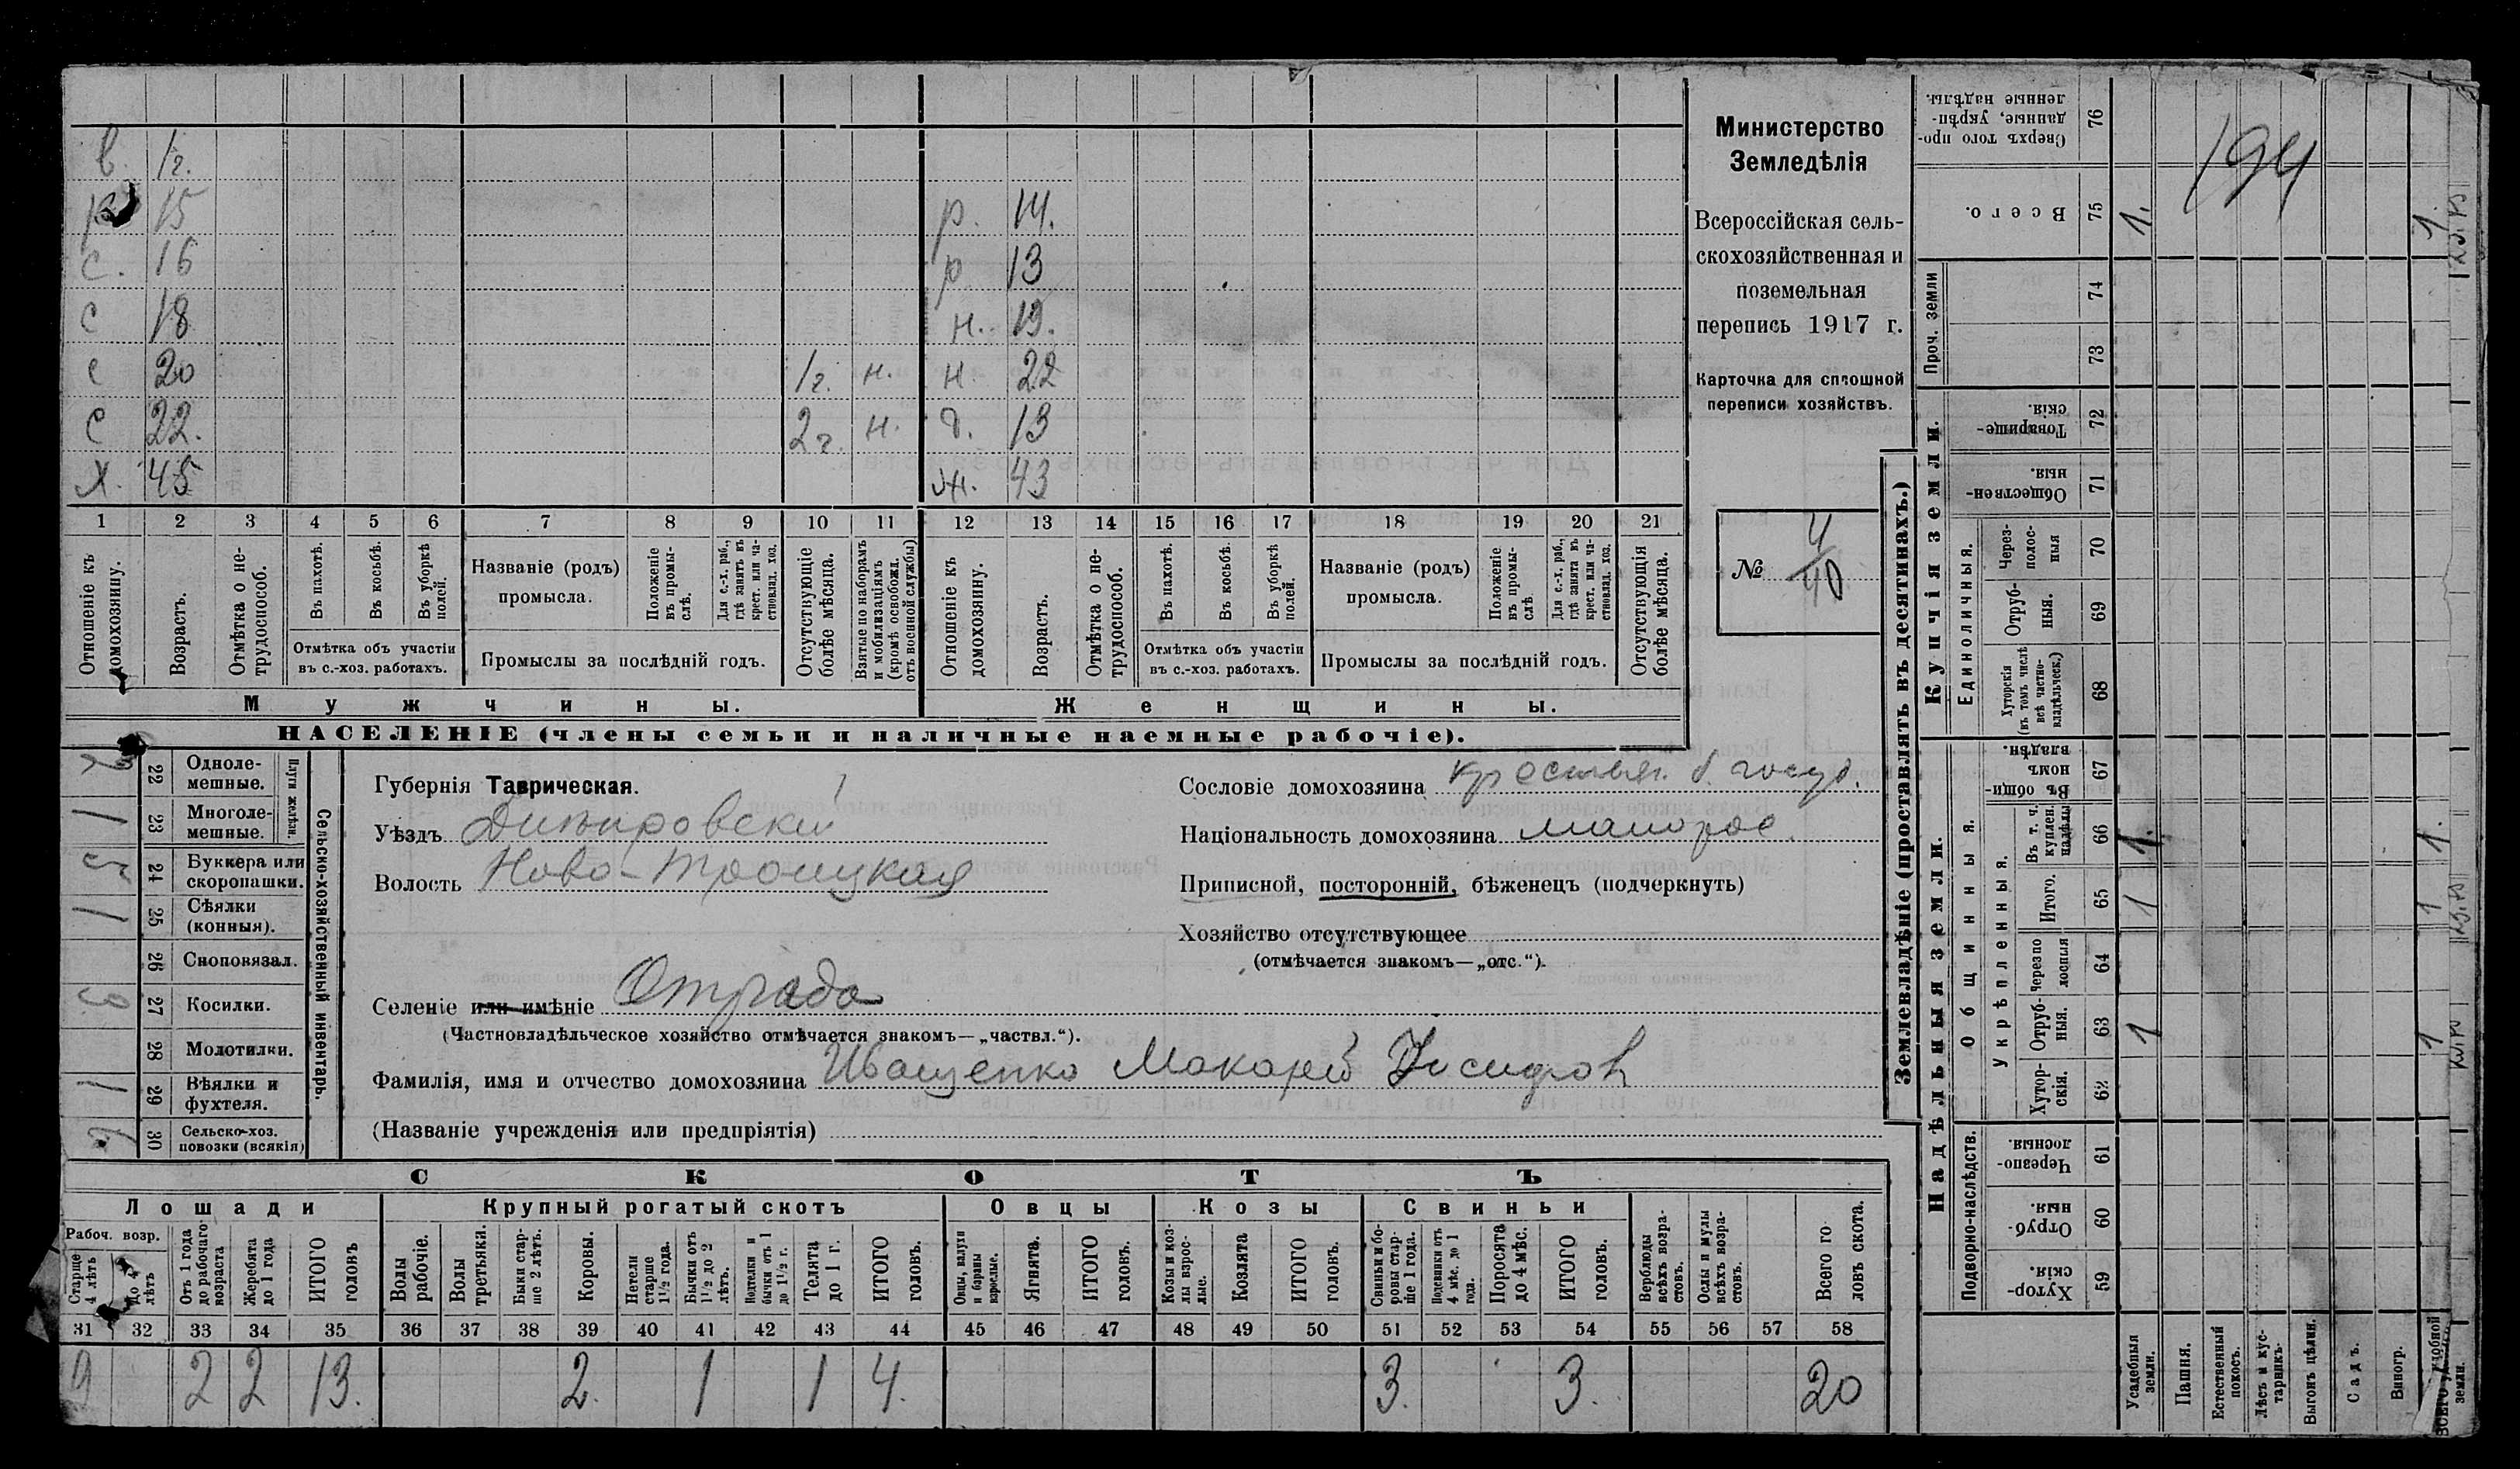 в. 1г.
р 15 р. 14.
с. 16 р 13
с 18 н. 19.
с 20 1г. н. н. 22
с 22. 2г. н. д. 13
х. 45 ж. 43
1 2 3 4 5 6 7 8 9 10 11 12 13 14 15 16 17 18 19 20 21
Отношеніе къ домохозяину.
Возрастъ.
Отмѣтка о не-трудоспособ.
Въ пахотѣ.
Въ косьбѣ.
Въ уборкѣ полей.
Отмѣтка объ участіи
въ с.-хоз. работахъ.
Названіе (родъ)
промысла.
Положеніе въ промы-слѣ.
Для с.-х. раб., гдѣ занятъ въ крест. или ча-стновлад. хоз.
Промыслы за послѣдній годъ.
Отсутствующіе болѣе мѣсяца.
Взятые по наборамъ и мобилизаціямъ (кромѣ освобожд. отъ военной службы)
Отношеніе къ домохозяину.
Возрастъ.
Отмѣтка о не-трудоспособ.
Въ пахотѣ.
Въ косьбѣ.
Въ уборкѣ полей.
Отмѣтка объ участіи
въ с.-хоз. работахъ.
Названіе (родъ)
промысла.
Положеніе въ промы-слѣ
Для с.-х. раб., гдѣ занята въ крест. или ча-стновлад. хоз.
Промыслы за послѣдній годъ.
Отсутствующія болѣе мѣсяца.
Мужчины. Женщины.
НАСЕЛЕНІЕ (члены семьи и наличные наемные рабочіе).
Министерство
Земледѣлія
Всероссійская сель-
скохозяйственная и
поземельная
перепись 1917 г.
Карточка для сплошной
переписи хозяйствъ.
№ 4/40
Сельско-хозяйственный инвентарь.
Плуги желѣзн.
22 Одноле-
мешные.
1 23 Многоле-
мешные.
24 Буккера или
скоропашки.
1 25 Сѣялки
(конныя).
26 Сноповязал.
27 Косилки.
28 Молотилки.
1 29 Вѣялки и
фухтеля.
30 Сельско-хоз.
повозки (всякія)
Губернія Таврическая.
Уѣздъ Днѣпровскій
Волость Ново-Троицкая
Селеніе или имѣніе Отрада
(Частновладѣльческое хозяйство отмѣчается знакомъ—„частвл.“).
Фамилія, имя и отчество домохозяина Иващенко Макарій Исидоров
(Названіе учрежденія или предпріятія)
Сословіе домохозяина крестьян. б. госуд.
Національность домохозяина малорос.
Приписной, посторонній, бѣженецъ (подчеркнуть)
Хозяйство отсутствующее
(отмѣчается знакомъ—„отс.“).
СКОТЪ
Лошади Крупный рогатый скотъ Овцы Козы Свиньи
Рабоч. возр.
Старше 4 лѣтъ
До 4 лѣтъ
Отъ 1 года до рабочаго возраста
Жеребята до 1 года
ИТОГО головъ
Волы рабочіе.
Волы третьяки.
Быки стар-ше 2 лѣтъ.
Коровы.
Нетели старше 1½ года.
Бычки отъ 1½ до 2 лѣтъ.
Подтелки и бычки отъ 1 до 1½ г.
Телята до 1 г.
ИТОГО головъ.
Овцы, валухи и бараны взрослые.
Ягнята.
ИТОГО головъ.
Козы и коз-лы взрос-лые.
Козлята
ИТОГО головъ.
Свиньи и бо-ровы стар-ше 1 года.
Подсвинки отъ 4 мѣс. до 1 года.
Поросята до 4 мѣс.
ИТОГО головъ.
Верблюды всѣхъ возра-стовъ.
Ослы и мулы всѣхъ возра-стовъ.
Всего го ловъ скота.
31 32 33 34 35 36 37 38 39 40 41 42 43 44 45 46 47 48 49 50 51 52 53 54 55 56 57 58
9 2 2 13. 2. 1 1 4. 3. 3. 20
Землевладѣніе (проставлять въ десятинахъ.)
Надѣльныя земли. Купчія земли. Проч. земли
Подворно-наслѣдств.
Общинныя.
Укрѣпленныя.
Единоличныя.
76 Сверхъ того про-данные, укрѣп-ленные надѣлы.
75 Всего. 1. 1
74
73
72 Товарище-скія.
71 Обществен-ныя
70 Через-полос-ныя
69 Отруб-ныя.
68 Хуторскія (въ томъ числѣ всѣ частно-владѣльческ.)
67 Въ общи-номъ владѣн.
66 Въ т. ч. куплен. надѣлы 1. 1.
65 Итого. 1 1
64 Черезпо лосныя
63 Отруб-ныя. 1 1
62 Хутор-скія.
61 Черезпо-лосныя.
60 Отруб-ныя.
59 Хутор-скія.
194
Усадебныя земли.
Пашня.
Естественный покосъ.
Лѣсъ и кус-тарникъ.
Выгонъ цѣлин.
Садъ.
Виногр.
земли.